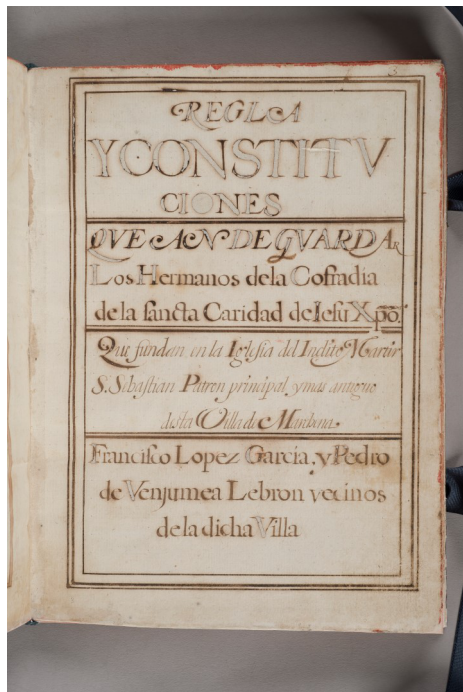 REGLA
Y CONSTITV
CIONES
QVE AN DE GVARDAR
Los Hermanos dela Cofradia
de la sancta Caridad de Iesu Xpō.
Que fundan en la Iglesia del Indito Martir
S. Sebastian Patron principal, y mas antiguo
desta Villa de Marchena.
Francisco Lopez Garcia, y Pedro
de Venjumea Lebron vecinos
de la dicha Villa